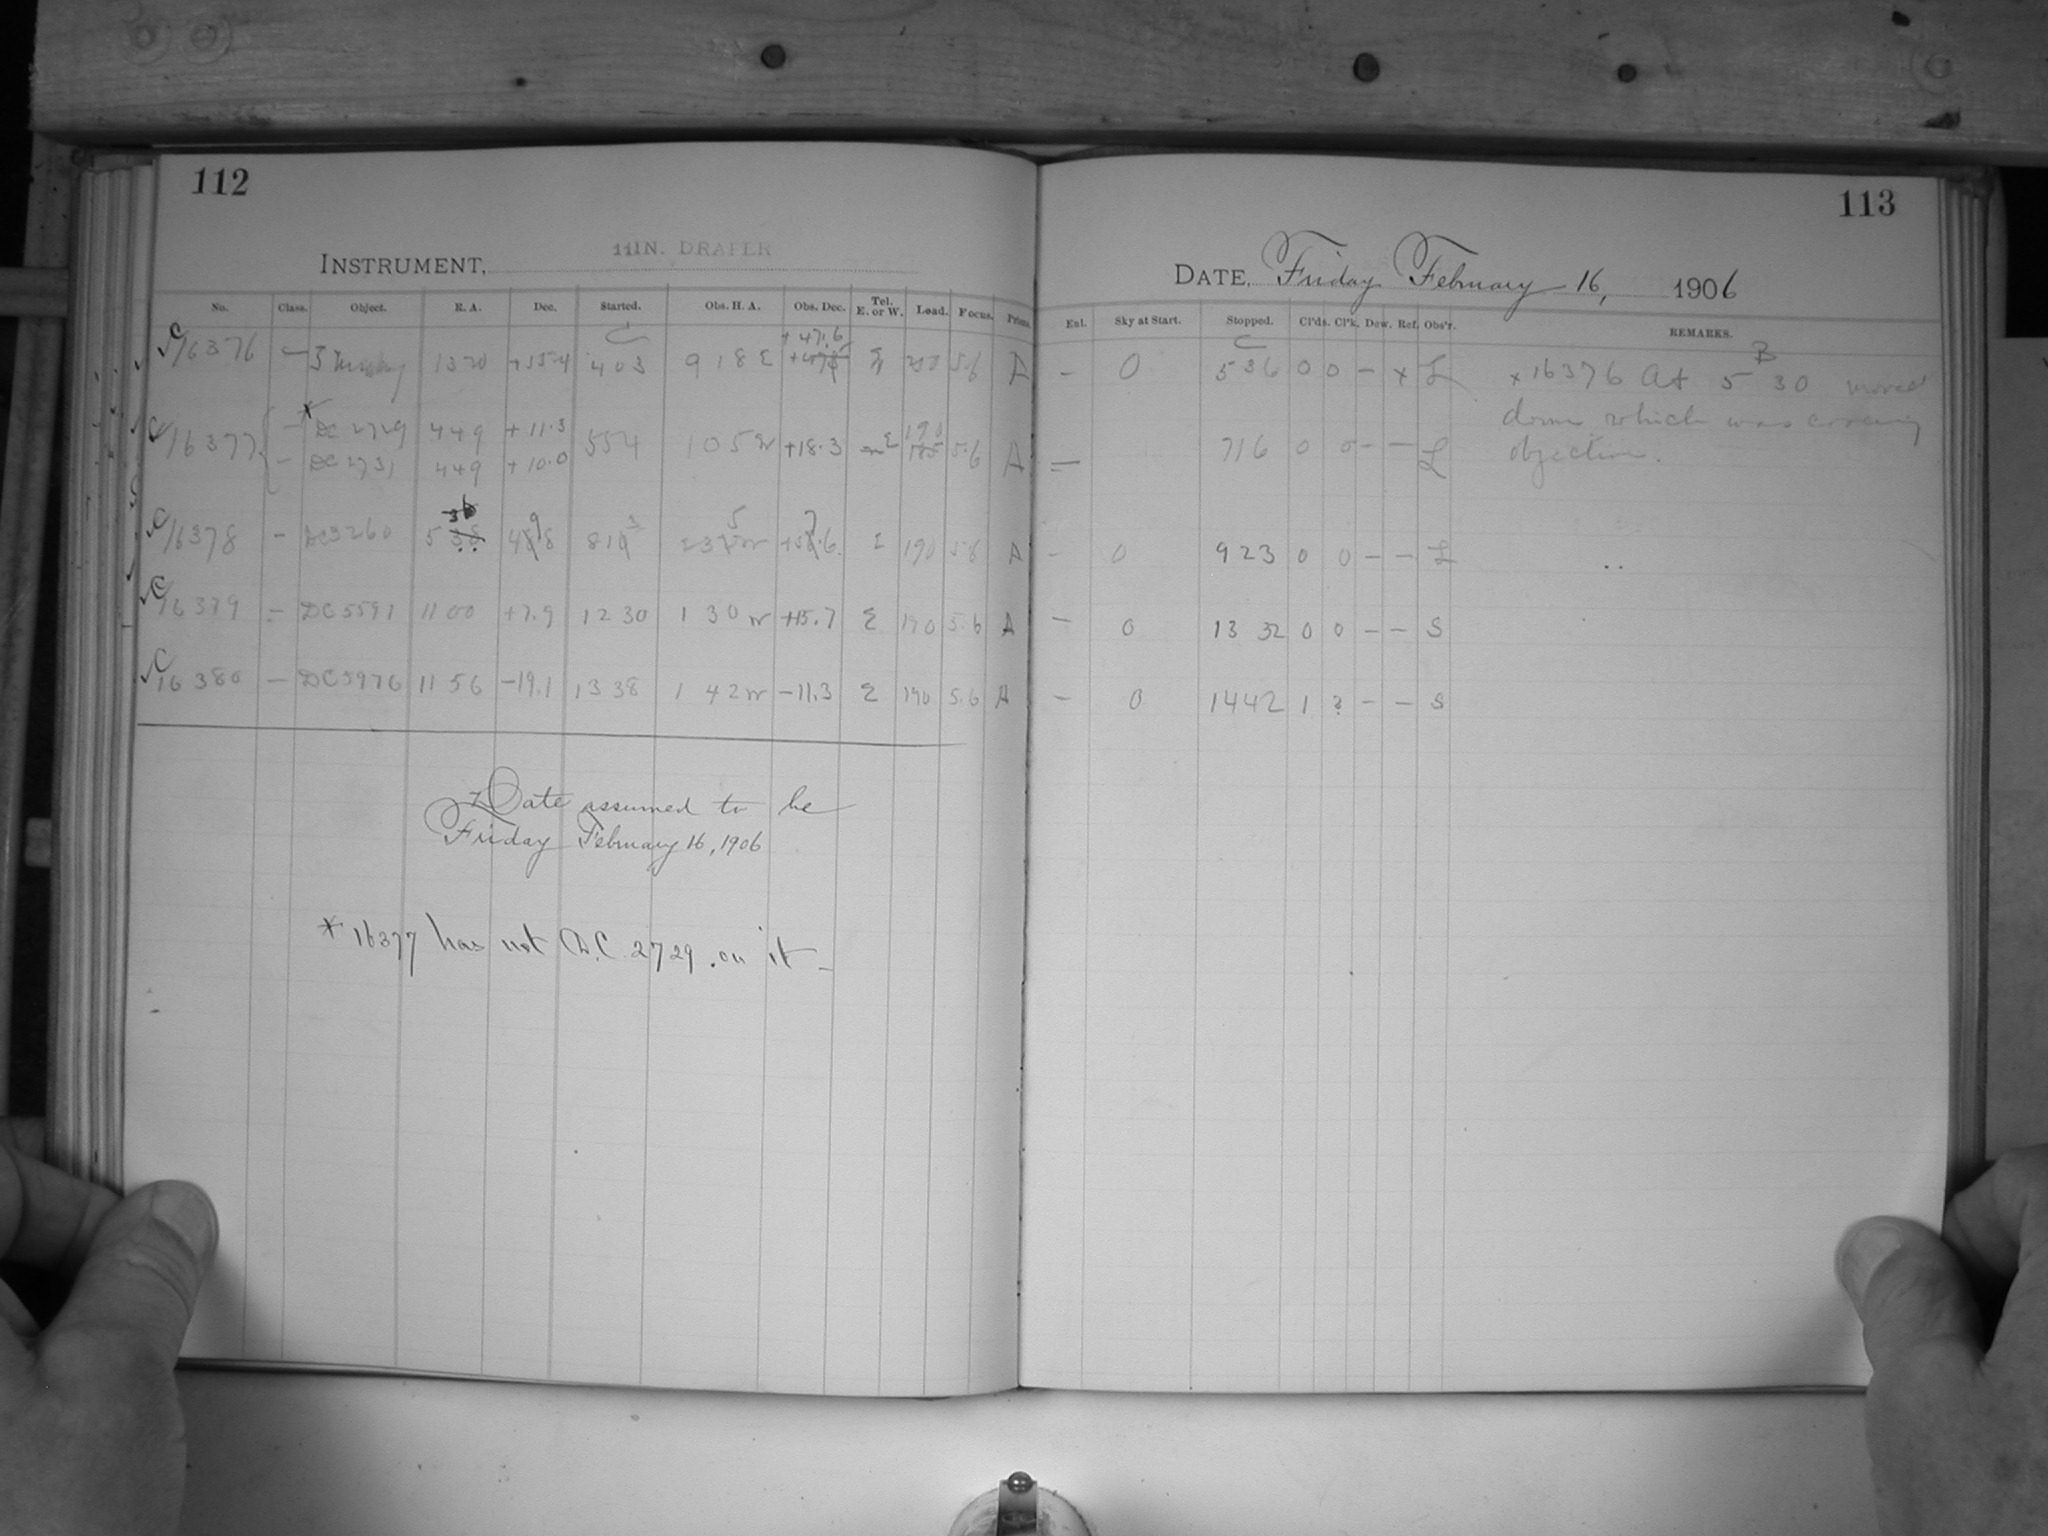 112
INSTRUMENT, 11IN. DRAPER
No. Class. Object. R. A. Dec. Started. Obs. H. A. Obs. Dec. Tel. E. or W. Load. Focus. Prism.
C
+47.6
C 16376 — 3 13 20 +55.4 4 03 9 18 E E 5.6 A
* 190
C 16377 — DC 2729 4 49 +11.3 5 54 1 05 W +18.3 E 5.6 A
— DC 2731 4 49 +10.0
36 9 3 5 7
C 16378 — DC 3260 5 38 8 10 W E 190 5.6 A
C 16379 — DC 5591 11 00 +7.9 12 30 1 30 W +15.7 E 190 5.6 A
C 16380 — DC 5976 11 56 −19.1 13 38 1 42 W −11.3 E 190 5.6 A
Date assumed to be
Friday February 16, 1906
* 16377 has not D.C. 2729 on it —
113
DATE, Friday February 16, 1906
Enl. Sky at Start. Stopped. Cl'ds. Cl'k. Dew. Ref. Obs'r. REMARKS.
C B
— 0 5 36 0 0 — x L x 16376 At 5 30 moved
dome which was covering
— 7 16 0 0 — — L objective.
— 0 9 23 0 0 — — L
— 0 13 32 0 0 — — S
— 0 14 42 1 2 — — S